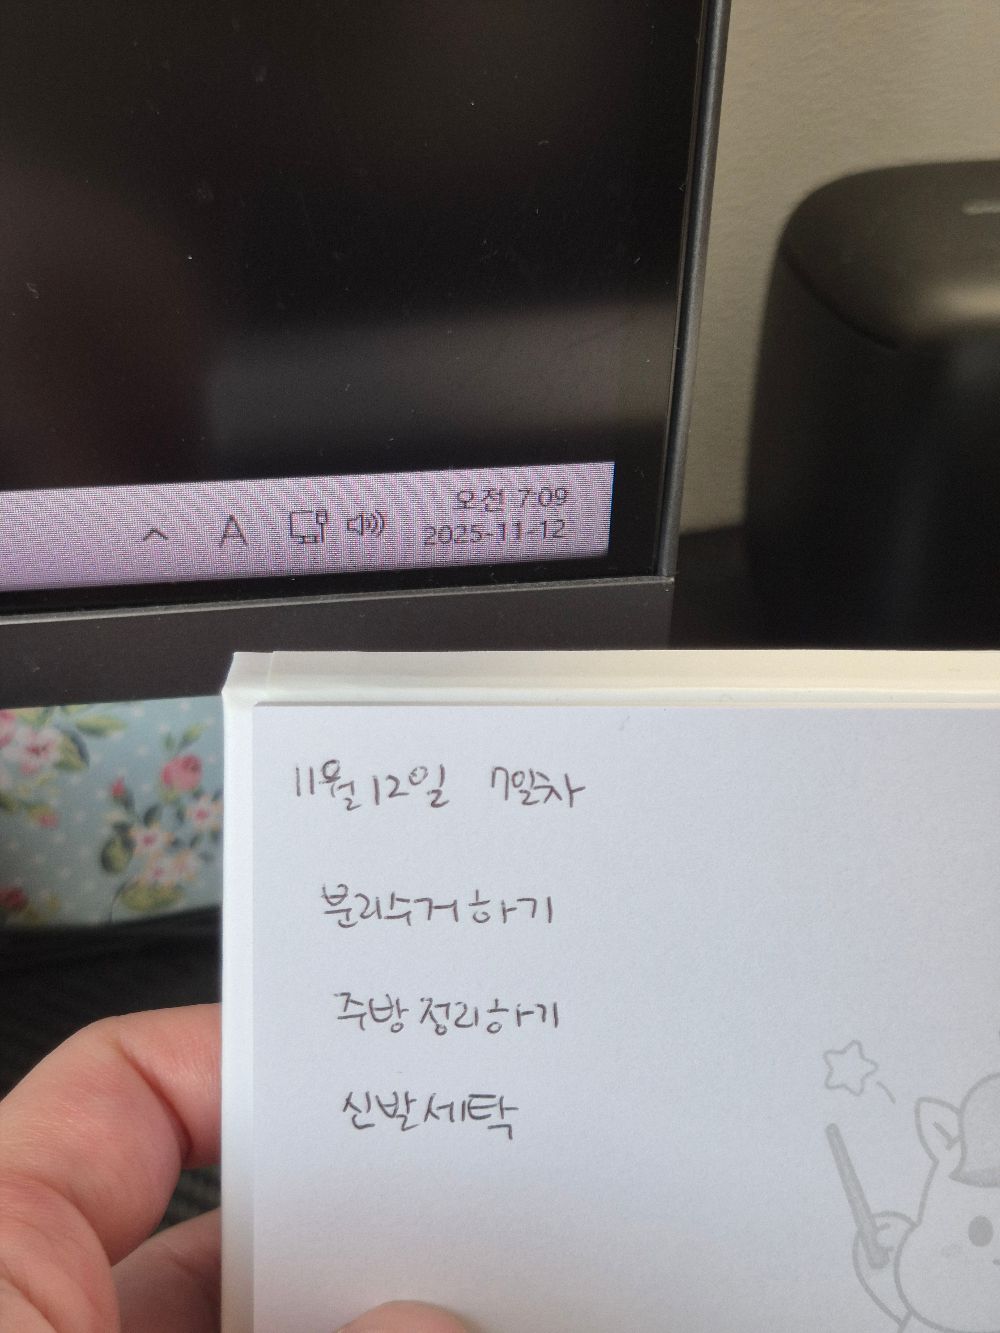 A
오전 7:09
2025-11-12
11월 12일 7일차
분리수거하기
주방 정리하기
신발세탁